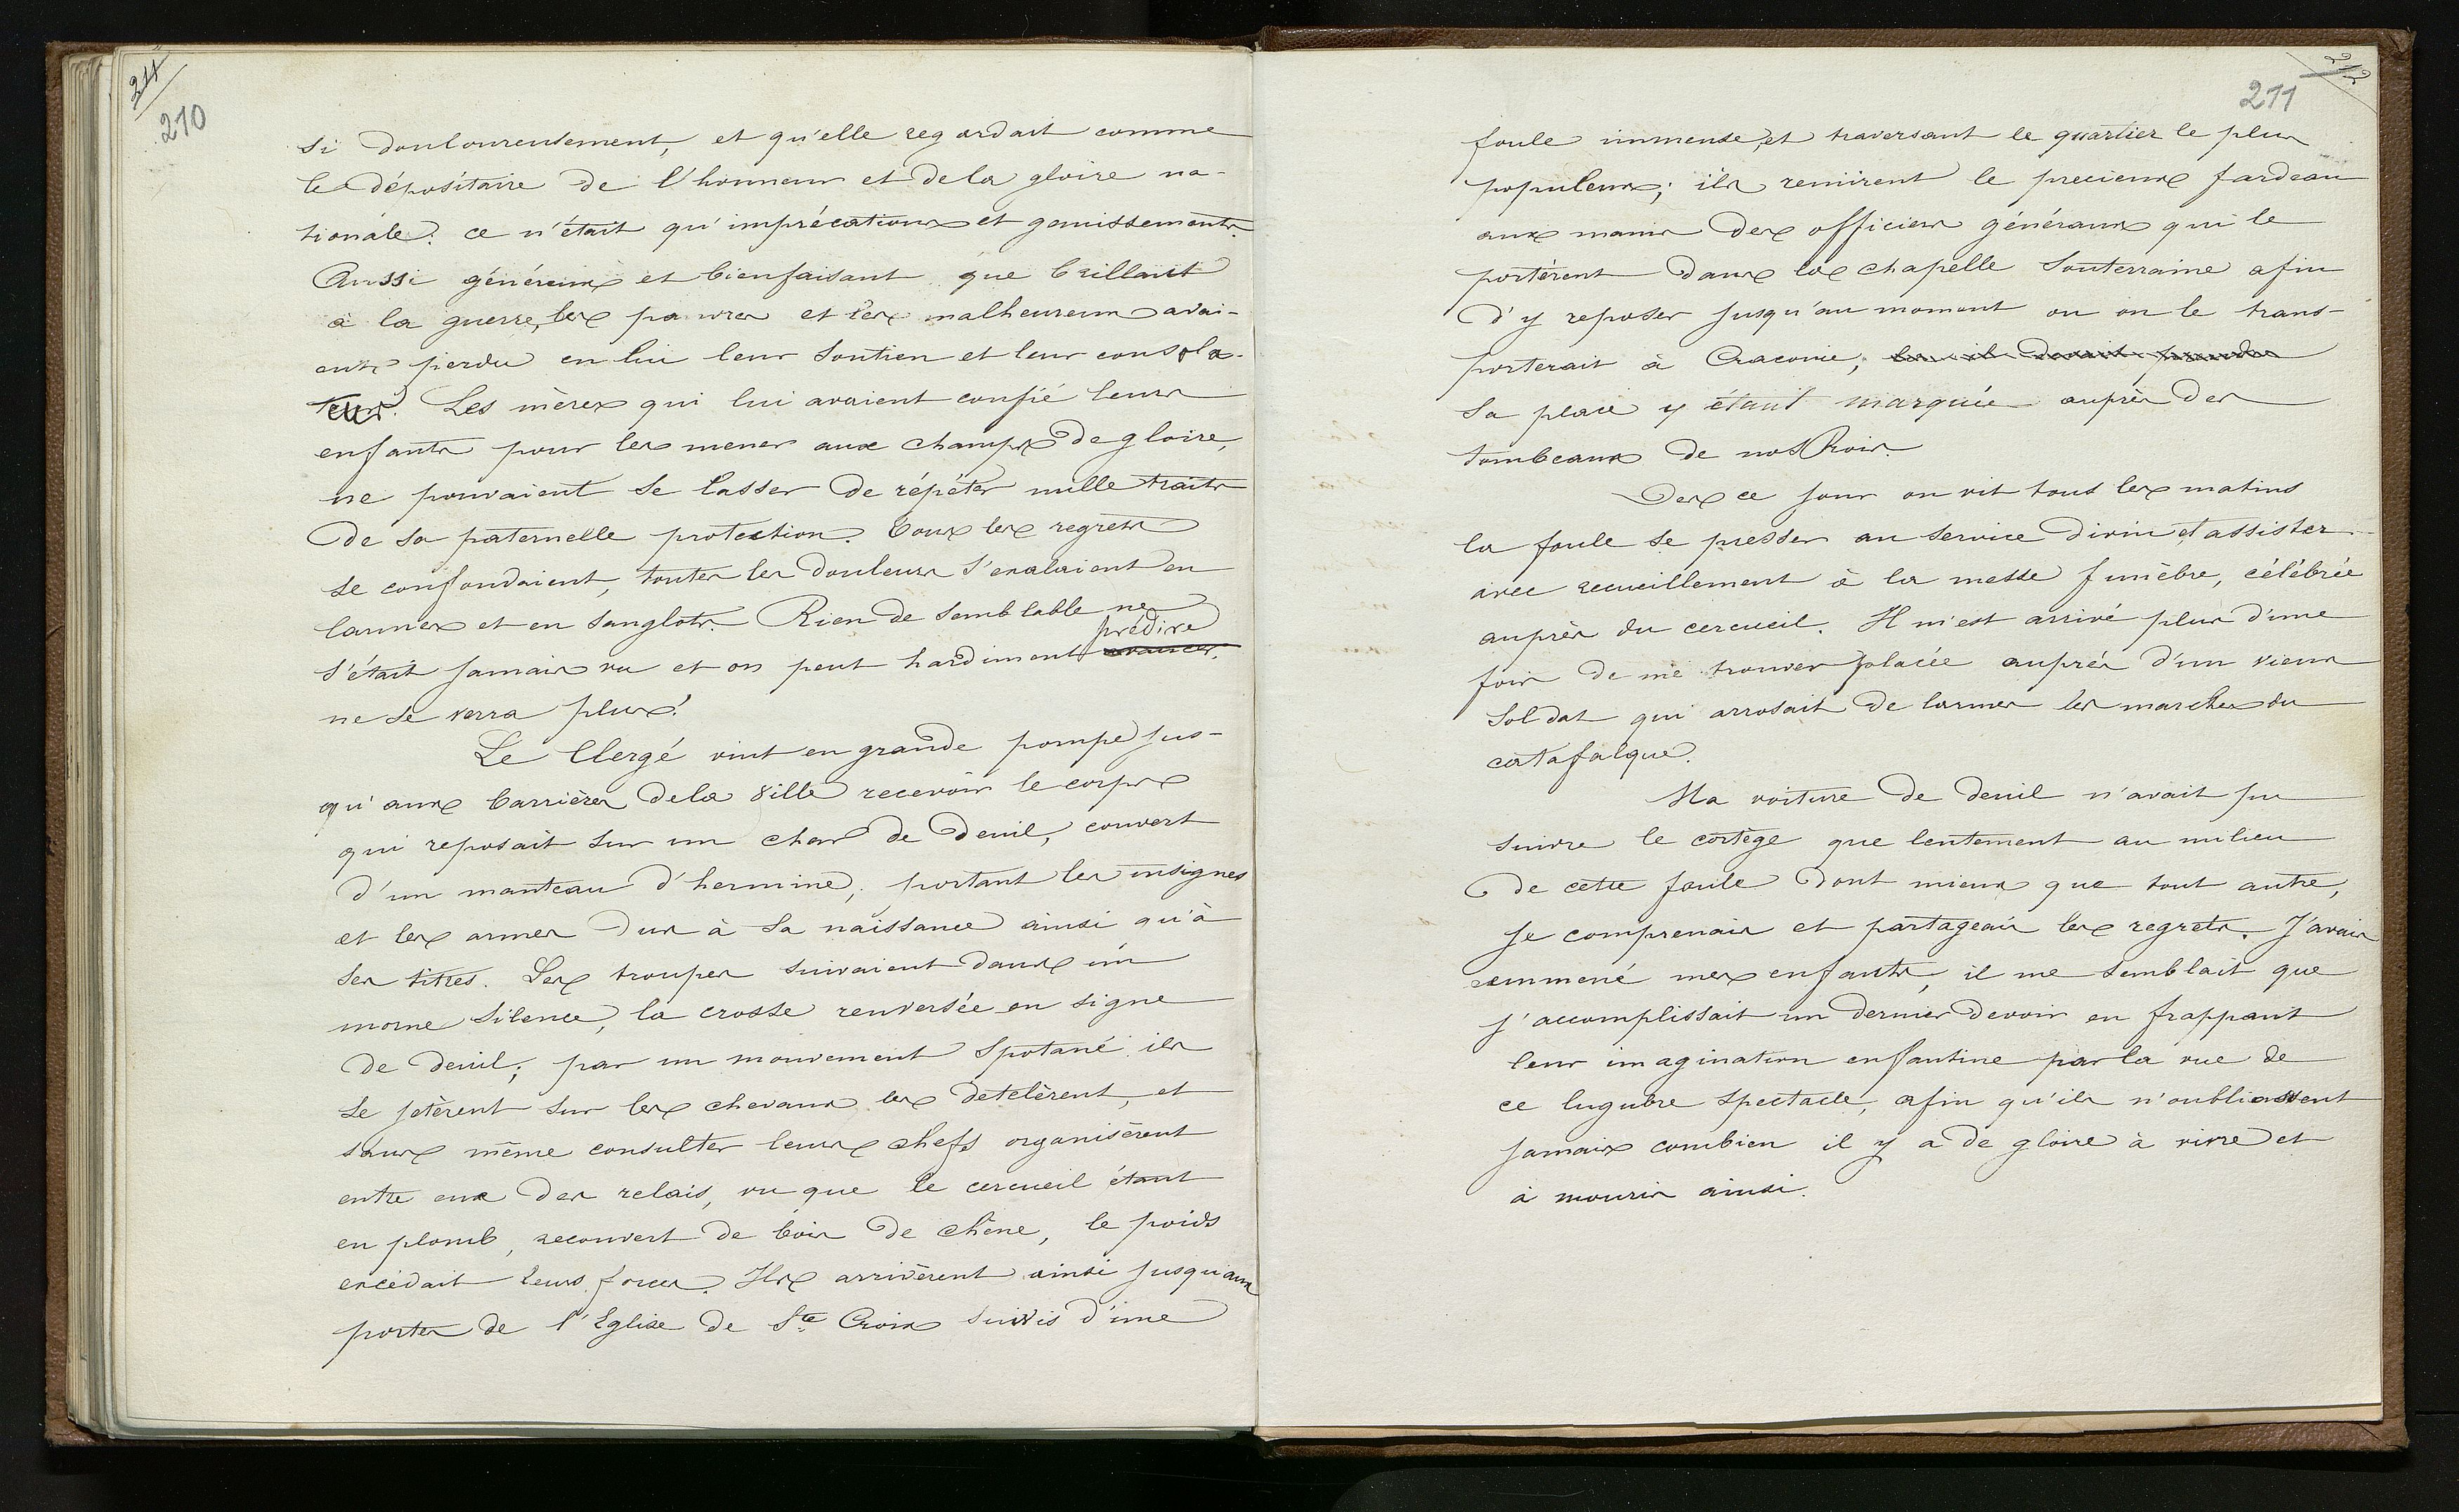 211
210
si douloureusement, et qu'elle regardait comme
le dépositaire de l'honneur et de la gloire na-
tionale. ce n'était qu'imprécations et gemissements.
Aussi généreux et bienfaisant que brillant
à la guerre, les pauvres et les malheureux avai-
ent perdu en lui leur soutien et leur consola-
teur. Les mères qui lui avaient confié leurs
enfants pour les mener aux champs de gloire,
ne pouvaient se lasser de répéter mille traits
de sa paternelle protection. Tous les regrets
se confondaient, toutes les douleurs s'exalaient en
larmes et en sanglots. Rien de semblable ne
prédire
s'était jamais vu et on peut hardiment avancer,
ne se verra plus!
Le Clergé vint en grande pompe jus-
qu'aux barrières de la ville recevoir le corps
qui reposait sur un char de deuil, couvert
d'un manteau d'hermine, portant les insignes
et les armes dus à sa naissance ainsi qu'à
ses titres. Les troupes suivaient dans un
morne silence, la crosse renversée en signe
de deuil; par un mouvement spotané ils
se jetèrent sur les chevaux les detelèrent, et
sans même consulter leurs chefs organisèrent
entre eux des relais, vu que le cercueil étant
en plomb, recouvert de bois de chêne, le poids
excédait leurs forces. Ils arrivèrent ainsi jusqu'aux
portes de l'Eglise de Ste Croix suivis d'une
212
211
foule immense, et traversant le quartier le plus
populeux; ils remirent le precieux fardeau
aux mains des officiers généraux qui le
portèrent dans la chapelle souterraine afin
d'y reposer jusqu'au moment ou on le trans-
porterait à Cracovie, il devait
sa place y étant marquée auprès des
tombeaux de nos Rois.
Des ce jour on vit tous les matins
la foule se presser au service divin et assister
avec recueillement à la messe funèbre, célébrée
auprès du cercueil. Il m'est arrivé plus d'une
fois de me trouver placée auprés d'un vieux
soldat qui arrosait de larmes les marches du
catafalque.
Ma voiture de deuil n'avait pu
suivre le cortège que lentement au milieu
de cette foule dont mieux que tout autre,
je comprenais et partageais les regrets. J'avais
emmené mes enfants, il me semblait que
j'accomplissait un dernier devoir en frappant
leur imagination enfantine par la vue de
ce lugubre spectacle, afin qu'ils n'oubliassent
jamais combien il y a de gloire à vivre et
à mourir ainsi.